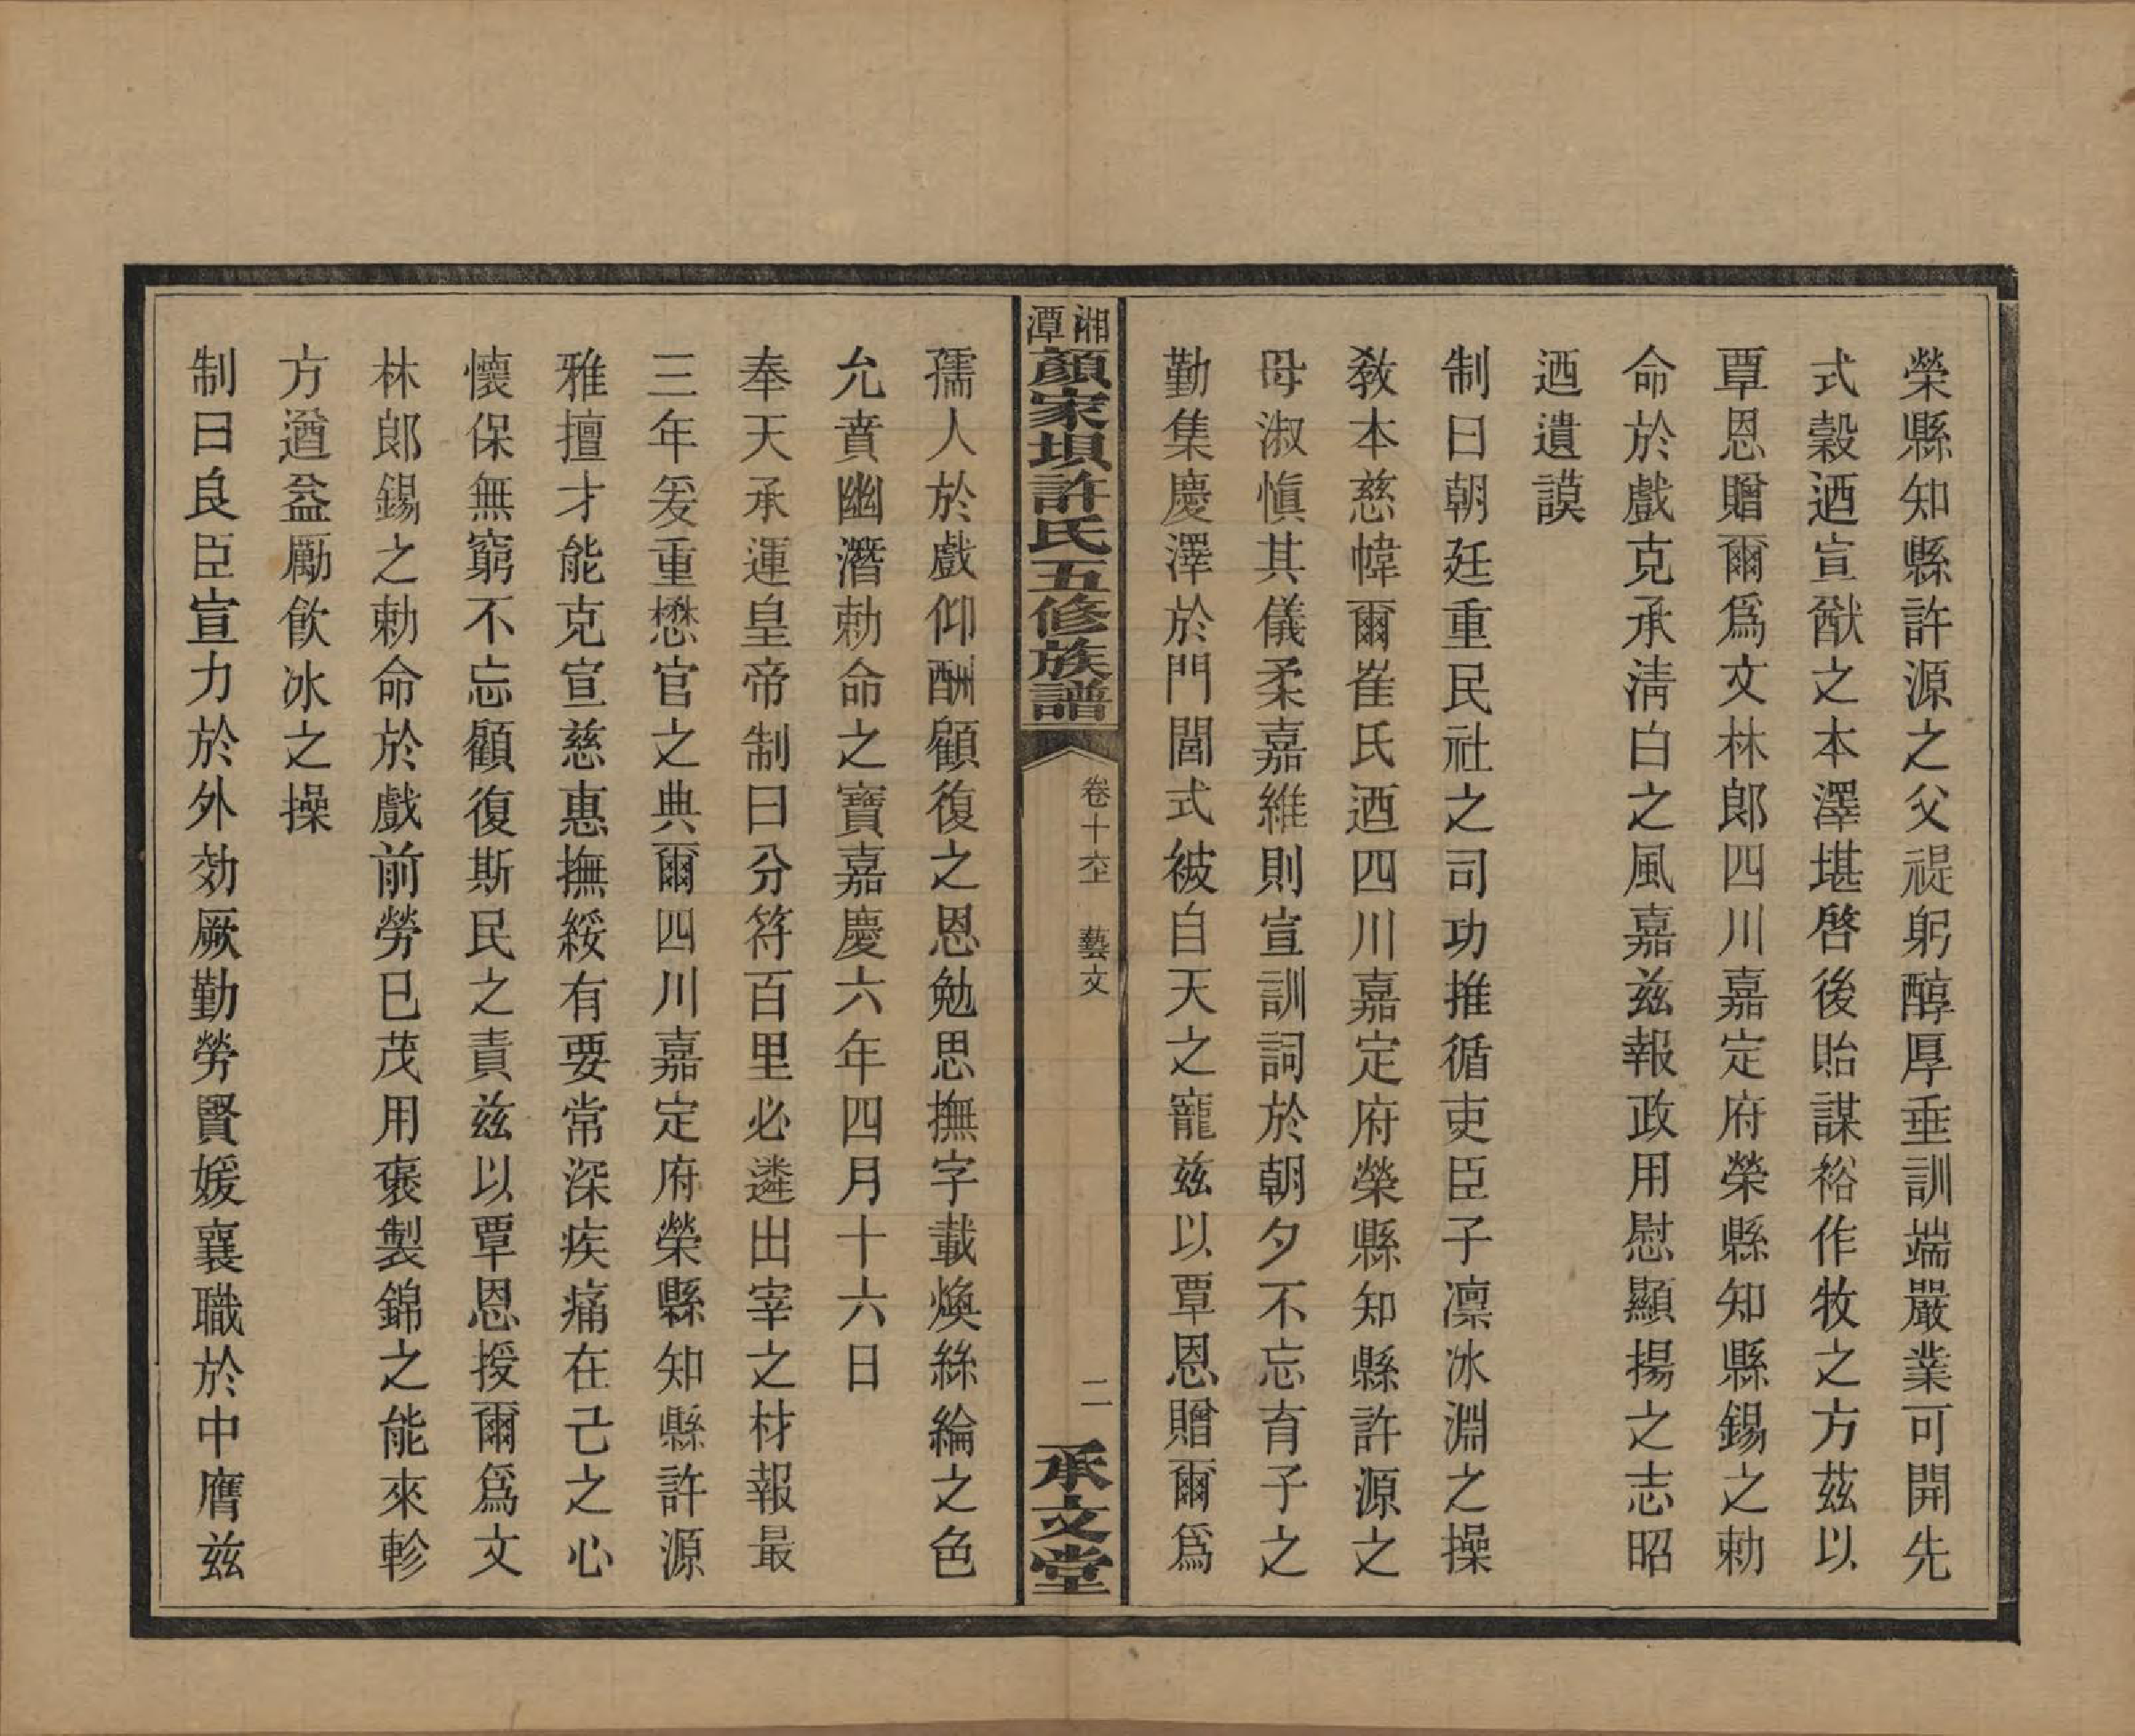 榮縣知縣許源之父禔躬醇厚垂訓端嚴業可開先
式穀迺宣猷之本澤堪啓後貽謀裕作牧之方茲以
覃恩贈爾爲文林郎四川嘉定府榮縣知縣錫之勅
命於戲克承淸白之風嘉兹報政用慰顯揚之志昭
迺遺謨
制曰朝廷重民社之司功推循吏臣子凛冰淵之操
敎本慈幃爾崔氏迺四川嘉定府榮縣知縣許源之
母淑愼其儀柔嘉維則宣訓詞於朝夕不忘育子之
勤集慶澤於門閭式被自天之寵兹以覃恩贈爾爲
湘潭顔家垻許氏五修族譜
卷十六 藝文
二
承文堂
孺人於戲仰酬顧復之恩勉思撫字載煥絲綸之色
允賁幽潛勅命之寶嘉慶六年四月十六日
奉天承運皇帝制曰分符百里必遴出宰之材報最
三年爰重懋官之典爾四川嘉定府榮縣知縣許源
雅擅才能克宣慈惠撫綏有要常深疾痛在己之心
懷保無窮不忘顧復斯民之責兹以覃恩授爾爲文
林郎錫之勅命於戲前勞已茂用褒製錦之能來軫
方遒益勵飮冰之操
制曰良臣宣力於外効厥勤勞賢媛襄職於中膺兹